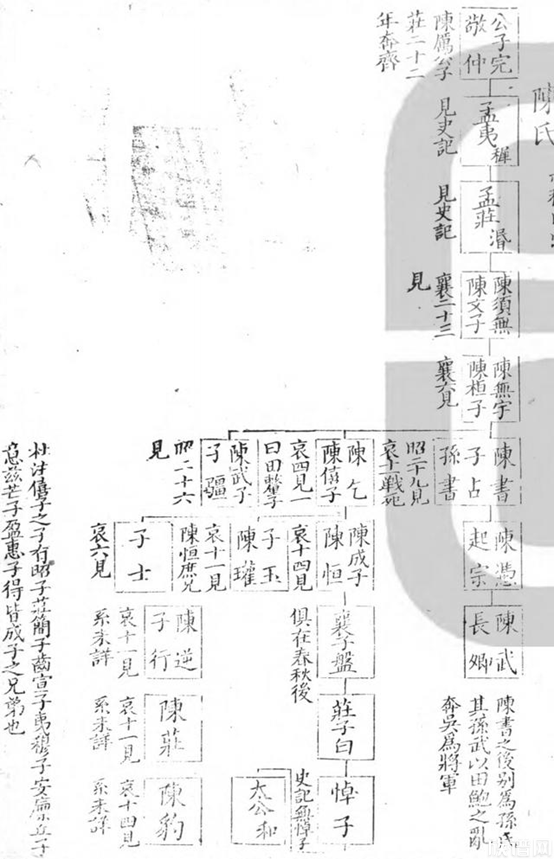 陳氏
公子完
敬仲
陳厲公子
莊二十二
年奔齊
孟夷穉
見史記
孟莊湣
見史記
陳須無
陳文子
襄二十三
見
陳無宇
陳桓子
襄六見
陳書
子占
孫書
昭十九見
哀十一戰死
陳乞
陳僖子
哀四見一
曰田釐子
陳武子
子彊
昭二十六
見
陳憑
起宗
陳成子
陳恒
哀十四見
子玉
陳瓘
哀十一見
陳恒庶兄
子士
哀六見
陳武
長卿
襄子盤
俱在春秋後
陳逆
子行
哀十一見
系未詳
陳書之後別爲孫氏
其孫武以田鮑之亂
奔吳爲將軍
莊子白
陳莊
哀十一見
系未詳
悼子
史記無悼子
太公和
陳豹
哀十四見
系未詳
杜注僖子之子有昭子莊簡子齒宣子夷穆子安廩丘子
意茲芒子盈惠子得皆成子之兄弟也